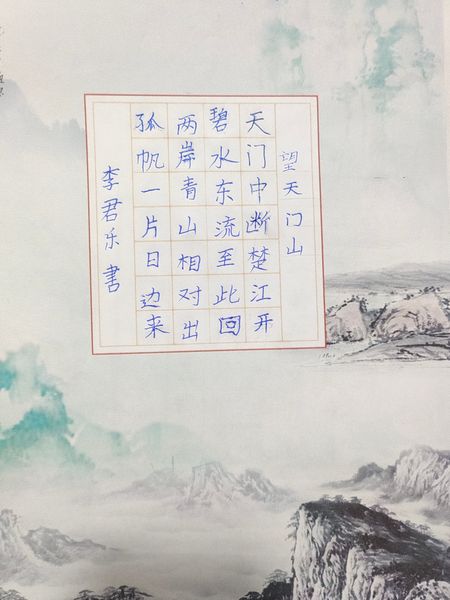 望天门山
天门中断楚江开
碧水东流至此回
两岸青山相对出
孤帆一片日边来
李君乐书